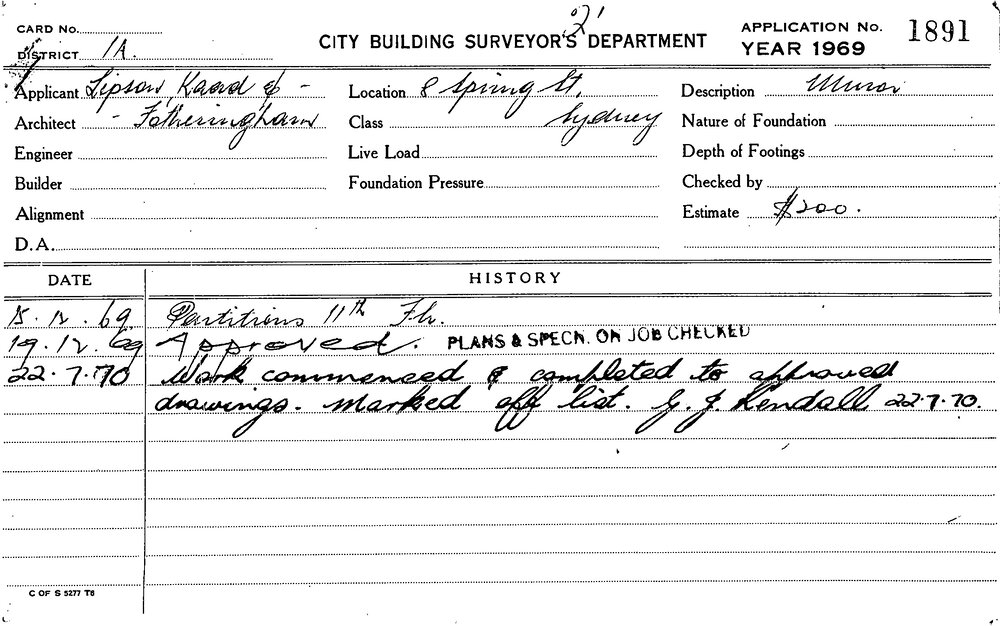 CARD No.
DISTRICT 1A.
21
CITY BUILDING SURVEYOR'S DEPARTMENT
APPLICATION No. 1891
YEAR 1969
Applicant Lipson Kaad & -
Location 8 Spring St,
Description Minor
Architect - Fotheringham
Class Sydney
Nature of Foundation
Engineer
Live Load
Depth of Footings
Builder
Foundation Pressure
Checked by
Alignment
Estimate $200.
D.A.
DATE
HISTORY
15.12.69 Partitions 11th Flr.
19.12.69 Approved. PLANS & SPECN. ON JOB CHECKED
22.7.70 Work commenced & completed to approved
drawings. Marked off list. G. J. Kendall 22.7.70.
C OF S 5277 T6